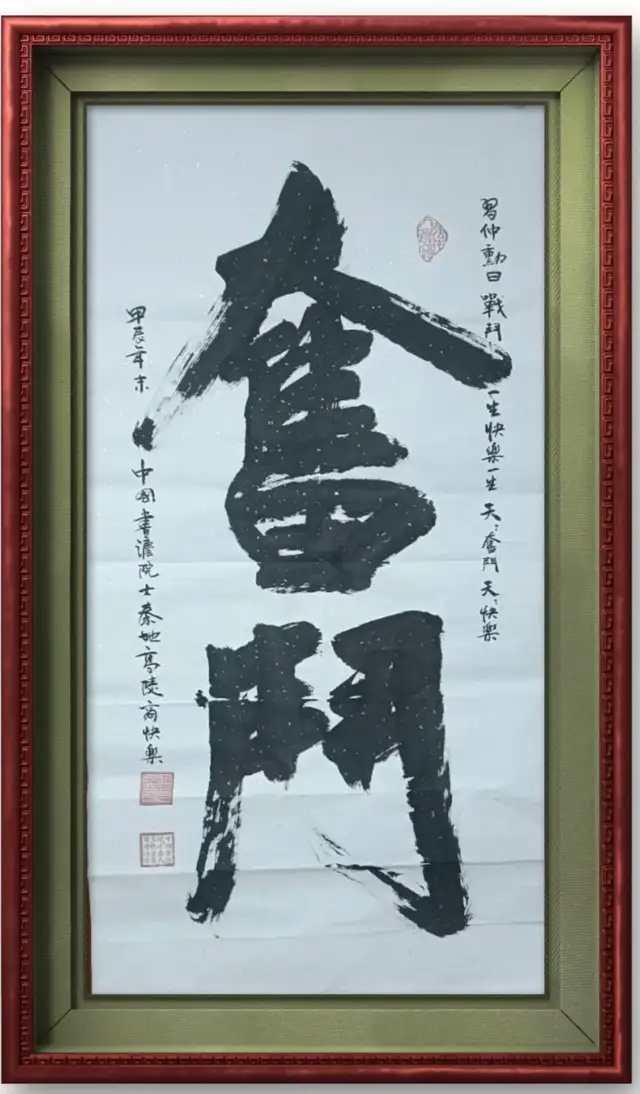 習仲勳曰 戰鬥一生快樂一生 天〻奮鬥 天〻快樂
奮鬥
甲辰年末 中國書譜院士秦地高陵商快樂